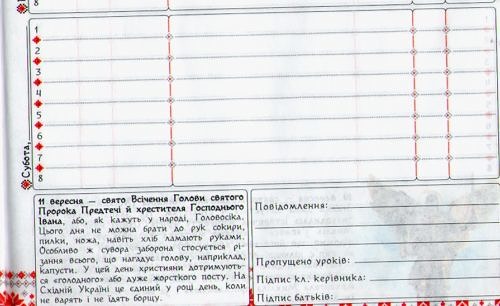 8
1
2
3
4
5
6
7
8
Субота,
11 вересня — свято Всічення Голови святого
Пророка Предтечі й хрестителя Господнього
Івана, або, як кажуть у народі, Головосіка.
Цього дня не можна брати до рук сокири,
пилки, ножа, навіть хліб ламають руками.
Особливо ж сувора заборона стосується рі-
зання всього, що нагадує голову, наприклад,
капусти. У цей день християни дотримують-
ся «голодного» або дуже жорсткого посту. На
Східній Україні це єдиний у році день, коли
не варять і не їдять борщу.
Повідомлення:
Пропущено уроків:
Підпис кл. керівника:
Підпис батьків: